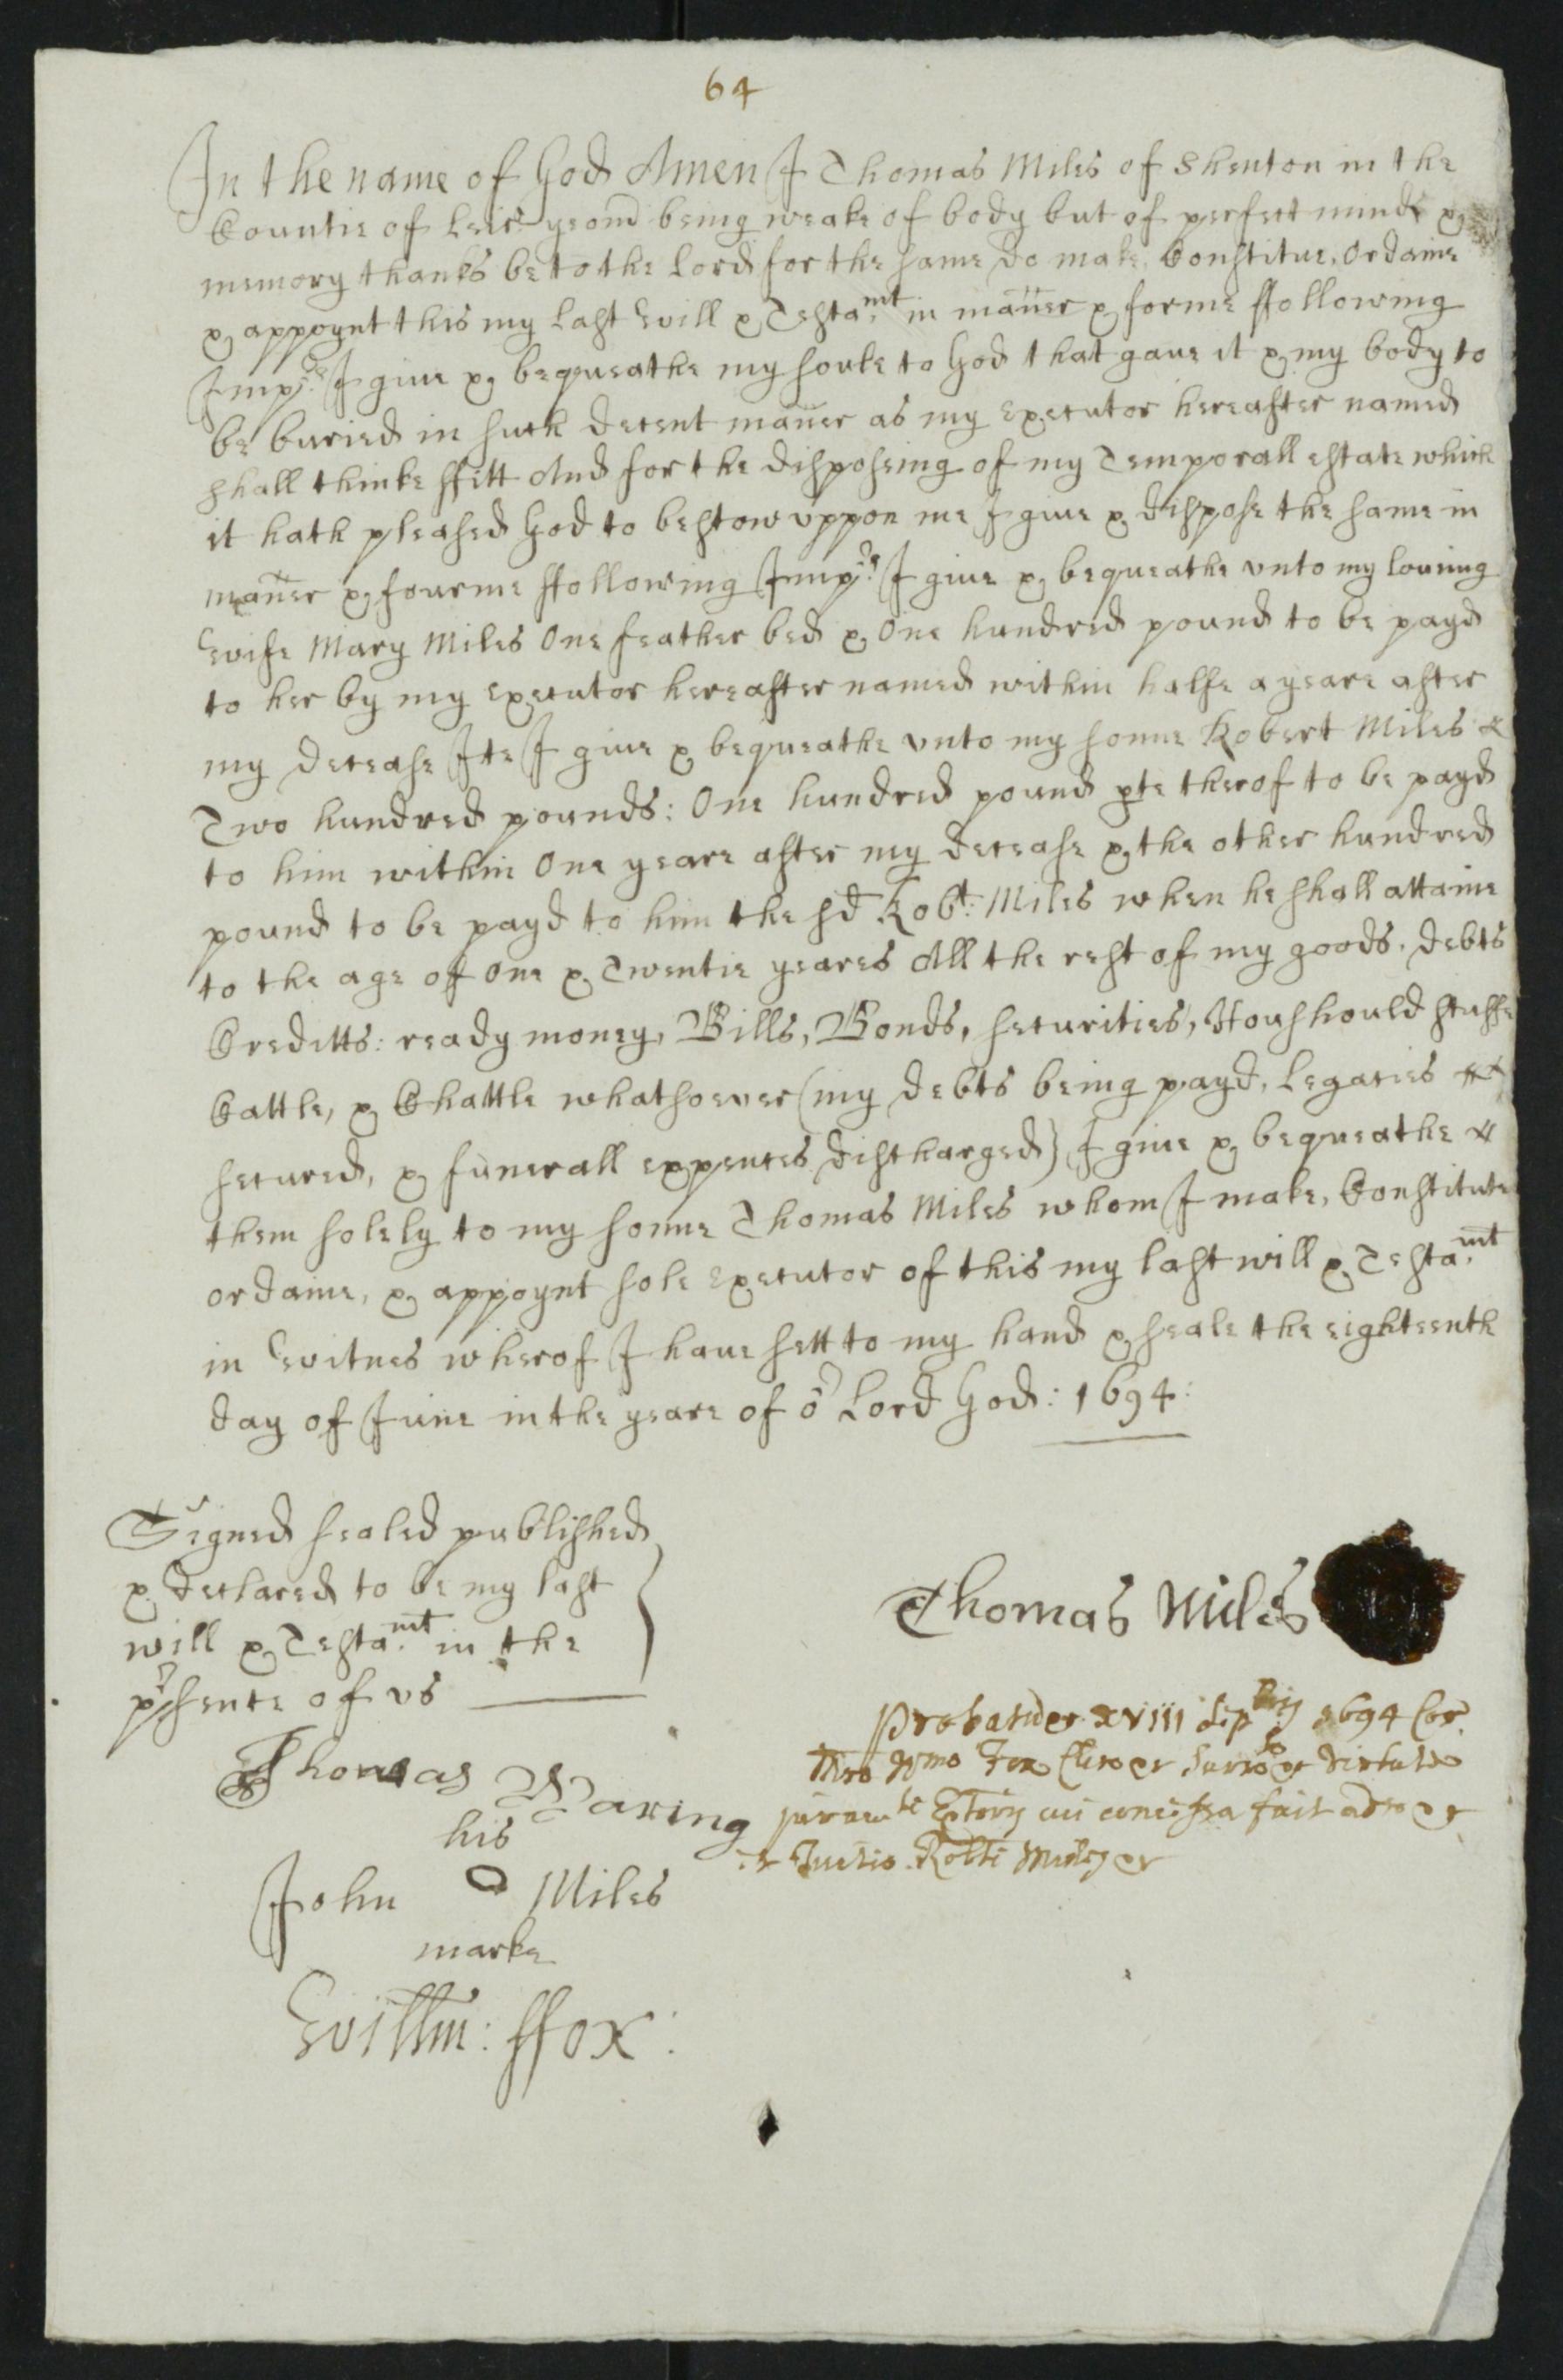 64
In the name of God Amen I Thomas Miles of Shenton in the
Countie of Leic yeom̄ being weake of body but of perfect minde &
memory thanks be to the Lord for the same do make, Constitue, Ordaine
& appoynt this my last Will & Testa:mt in mañer & forme ffollowing
Imp:rs I giue & bequeathe my soule to God that gaue it & my body to
be buried in such decent mañer as my Executor hereafter named
shall thinke ffitt And for the disposeing of my Temporall estate which
it hath pleased God to bestow vppon me I giue & dispose the same in
mañer & fourme ffollowing Imp:rs I giue & bequeathe vnto my louing
Wife Mary Miles One feather bed & One hundred pound to be payd
to her by my Executor hereafter named within halfe a yeare after
my decease Ite I giue & bequeathe vnto my sonne Robert Miles
Two hundred pounds: One hundred pound pte therof to be payd
to him within One yeare after my decease & the other hundred
pound to be payd to him the sd Robt: Miles when he shall attaine
to the age of One & Twentie yeares All the rest of my goods, debts
Creditts: ready money, Bills, Bonds, securities, Houshould stuffe
Cattle, & Chattle whatsoever (my debts being payd, Legacies
secured, & funerall expences discharged) I giue & bequeathe
them solely to my sonne Thomas Miles whom I make, Constitute
ordaine, & appoynt sole Executor of this my last will & Testa:mt
in Witnes wherof I haue sett to my hand & seale the eighteenth
day of June in the yeare of or Lord God: 1694:
Signed sealed published
& declared to be my last
will & Testa:mt in the
prsence of vs
Thomas Miles
Thomas Waring
his
John O Miles
marke
Willm: ffox:
Probatū xviii 1694 Cor
cui concessa fuit
Robti Miles